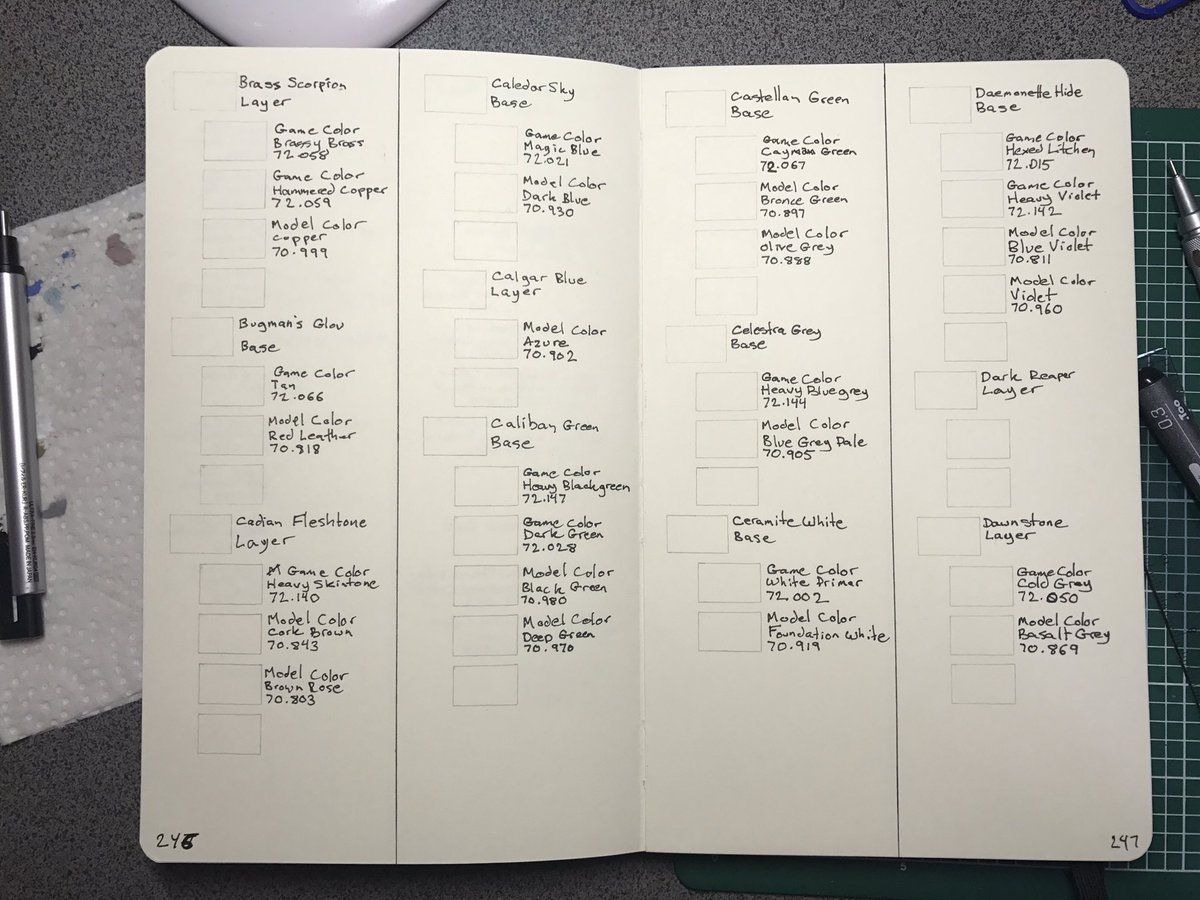 Brass Scorpion
Layer
Game Color
Brassy Brass
72.058
Game Color
Hammered Copper
72.059
Model Color
Copper
70.999
Bugman's Glov
Base
Game Color
Tan
72.066
Model Color
Red Leather
70.818
Cadian Fleshtone
Layer
Game Color
Heavy Skintone
72.140
Model Color
Cork Brown
70.843
Model Color
Brown Rose
70.803
246
Caledor Sky
Base
Game Color
Magic Blue
72.021
Model Color
Dark Blue
70.930
Calgar Blue
Layer
Model Color
Azure
70.902
Caliban Green
Base
Game Color
Heavy Blackgreen
72.147
Game Color
Dark Green
72.028
Model Color
Black Green
70.980
Model Color
Deep Green
70.970
Castellan Green
Base
Game Color
Cayman Green
72.067
Model Color
Bronce Green
70.897
Model Color
Olive Grey
70.888
Celestra Grey
Base
Game Color
Heavy Bluegrey
72.144
Model Color
Blue Grey Pale
70.905
Ceramite White
Base
Game Color
White Primer
72.002
Model Color
Foundation White
70.919
Daemonette Hide
Base
Game Color
Hexed Litchen
72.015
Game Color
Heavy Violet
72.142
Model Color
Blue Violet
70.811
Model Color
Violet
70.960
Dark Reaper
Layer
Dawnstone
Layer
Game Color
Cold Grey
72.050
Model Color
Basalt Grey
70.869
247
0.3